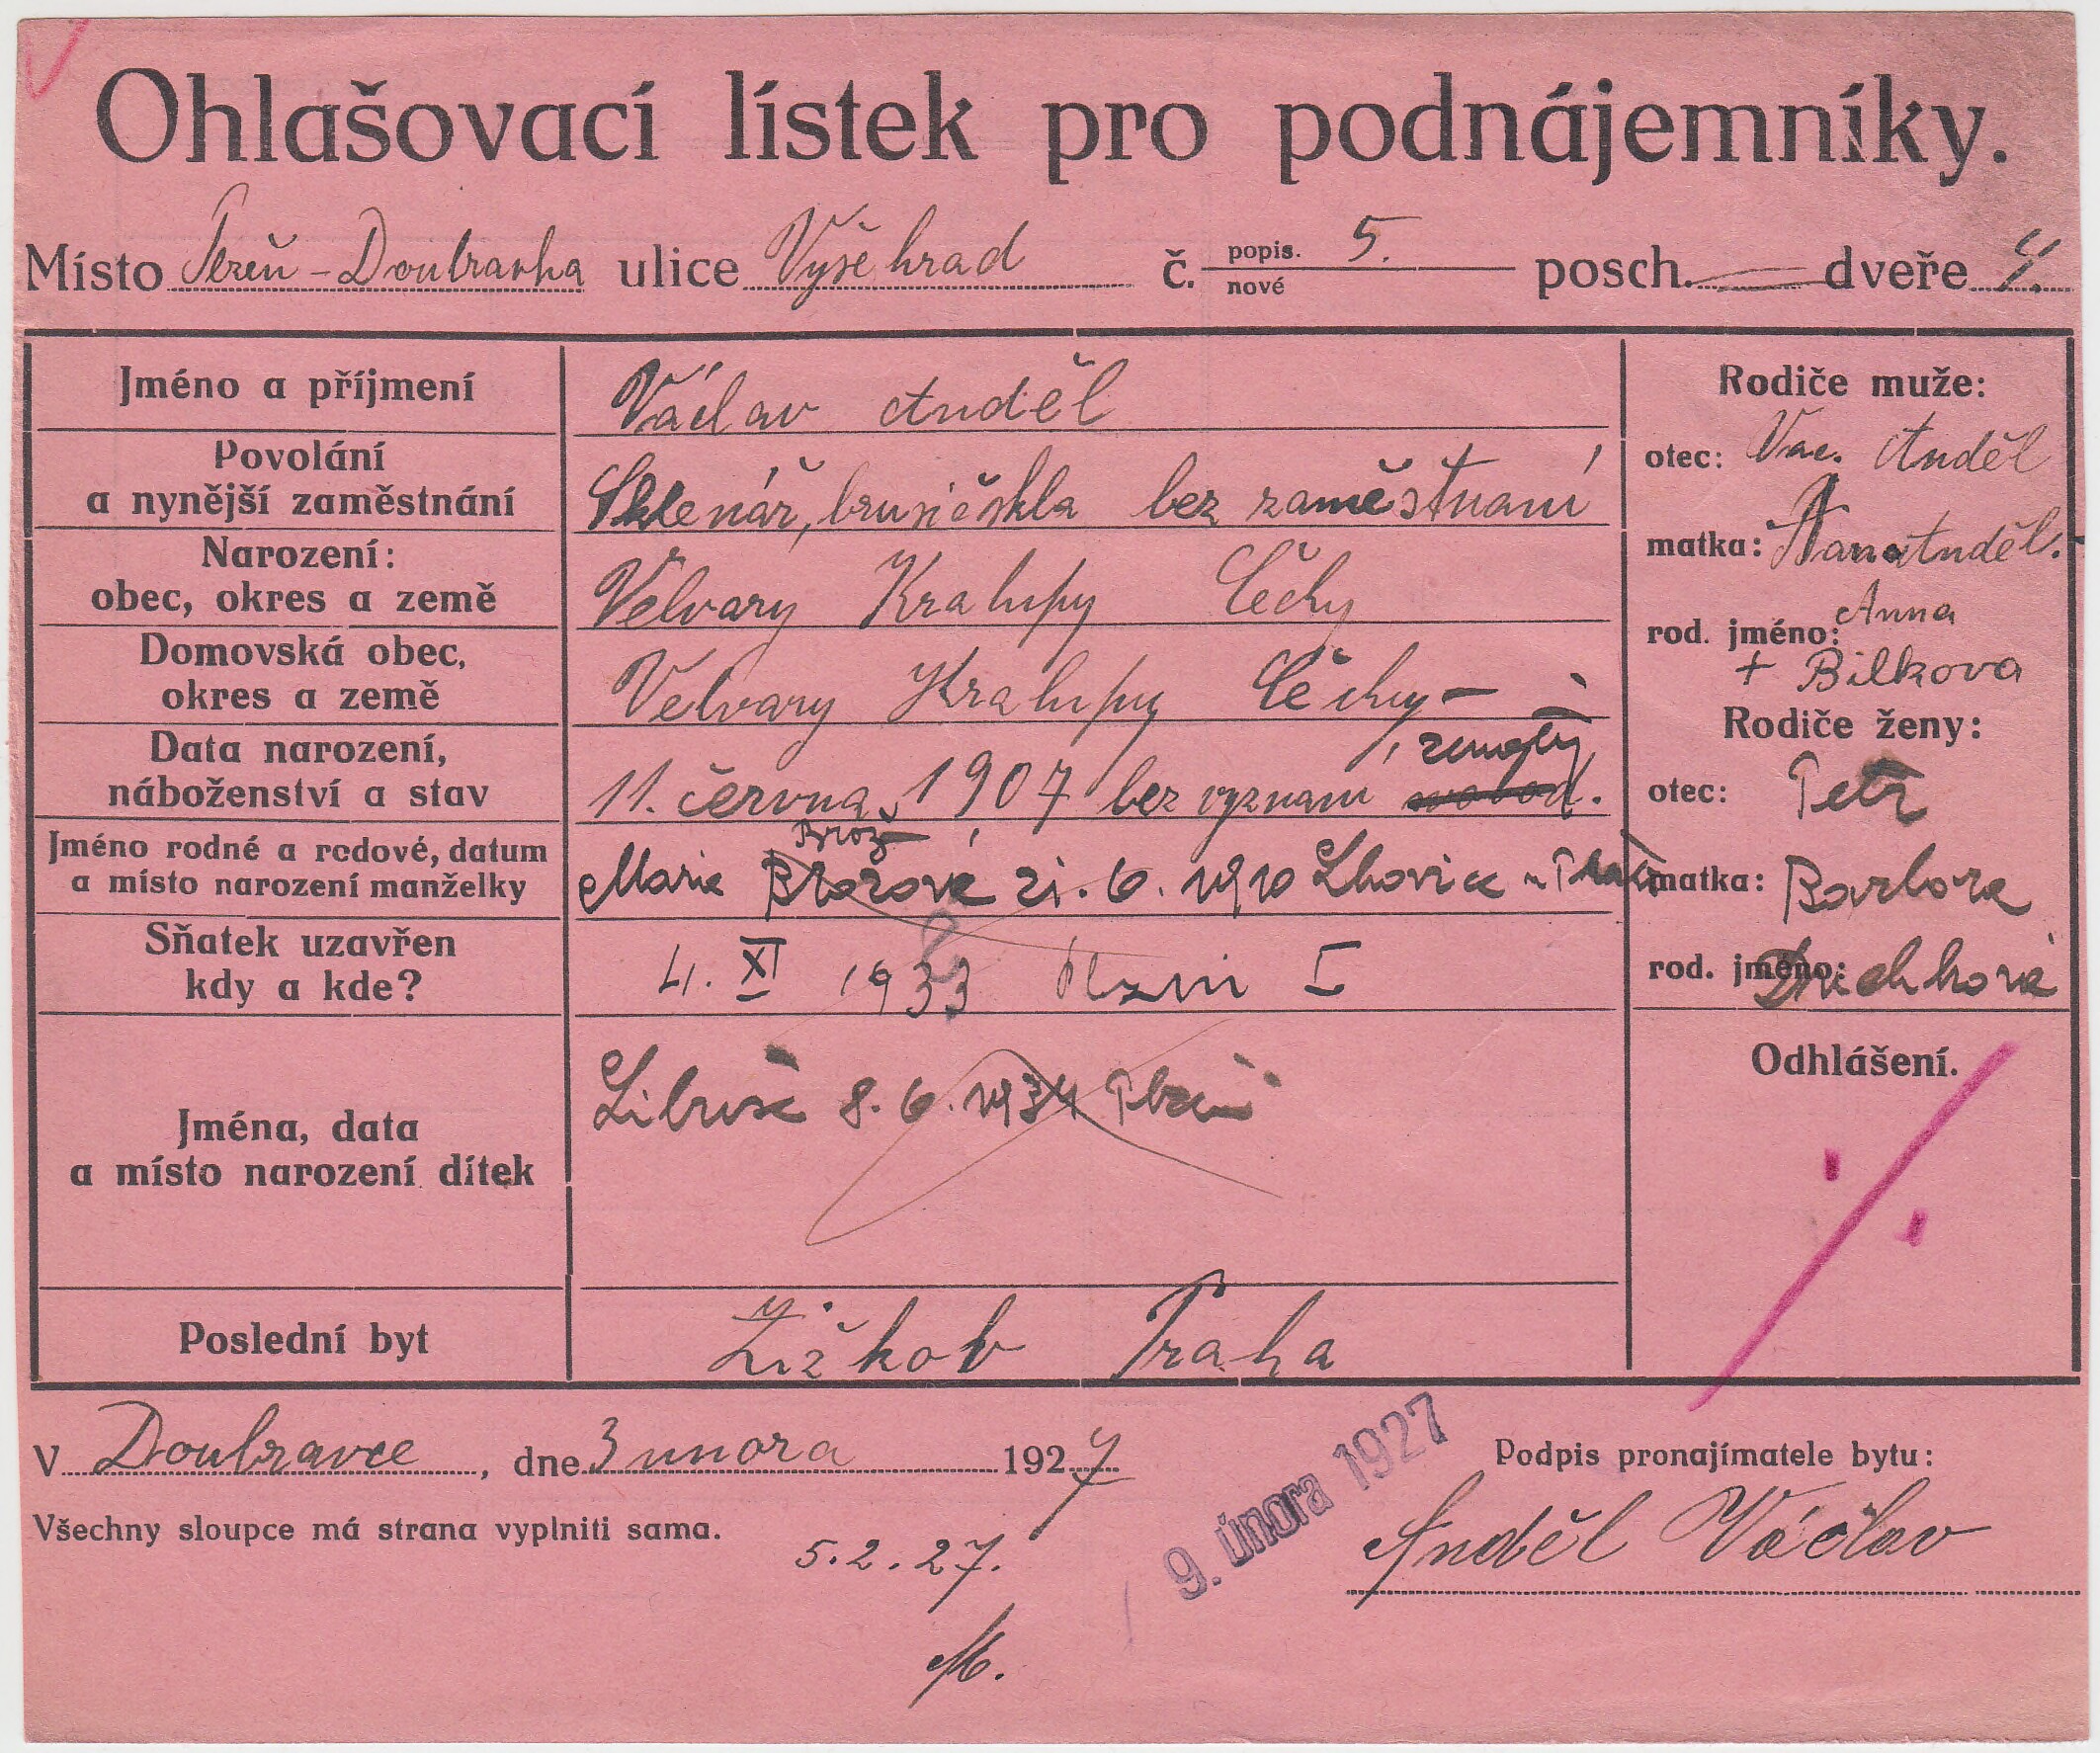 Ohlašovací lístek pro podnájemníky.
Místo Plzeň - Doubravka ulice Vyšehrad č. popis. 5. nové posch. — dveře 4.
Jméno a příjmení
Václav Anděl
Povolání
a nynější zaměstnání
Sklenář, brusič skla bez zaměstnání
Narození:
obec, okres a země
Velvary Kralupy Čechy
Domovská obec,
okres a země
Velvary Kralupy Čechy
Data narození,
náboženství a stav
11. června 1907 bez vyznání svobod.
Jméno rodné a rodové, datum
a místo narození manželky
Brož
Marie 21. 6. 1910 Lhovice
Sňatek uzavřen
kdy a kde?
4. XI 1933 Plzni I
Jména, data
a místo narození dítek
Libuše 8. 6. 1934 Plzeň
Poslední byt
Žižkov Praha
Rodiče muže:
otec: Vác. Anděl
matka: Anděl.
rod. jméno: Anna
+ Bilkova
Rodiče ženy:
otec: Petr
matka: Barbora
rod. jméno:
Odhlášení.
V Doubravce, dne 3 unora 1927
Všechny sloupce má strana vyplniti sama.
5. 2. 27.
9. února 1927
Podpis pronajímatele bytu:
Anděl Václav